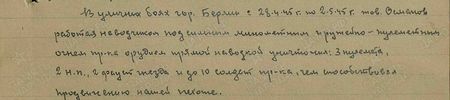 В уличных боях гор. Берлин с 28.4.45 г. по 2.5.45 г. тов. Османов
работая наводчиком под сильным минометным и ружейно-пулеметным
огнем пр-ка орудием прямой наводкой уничтожил: 3 пулемета,
2 н.п., 2 фауст гнезда и до 10 солдат пр-ка, чем способствовал
продвижению нашей пехоте.